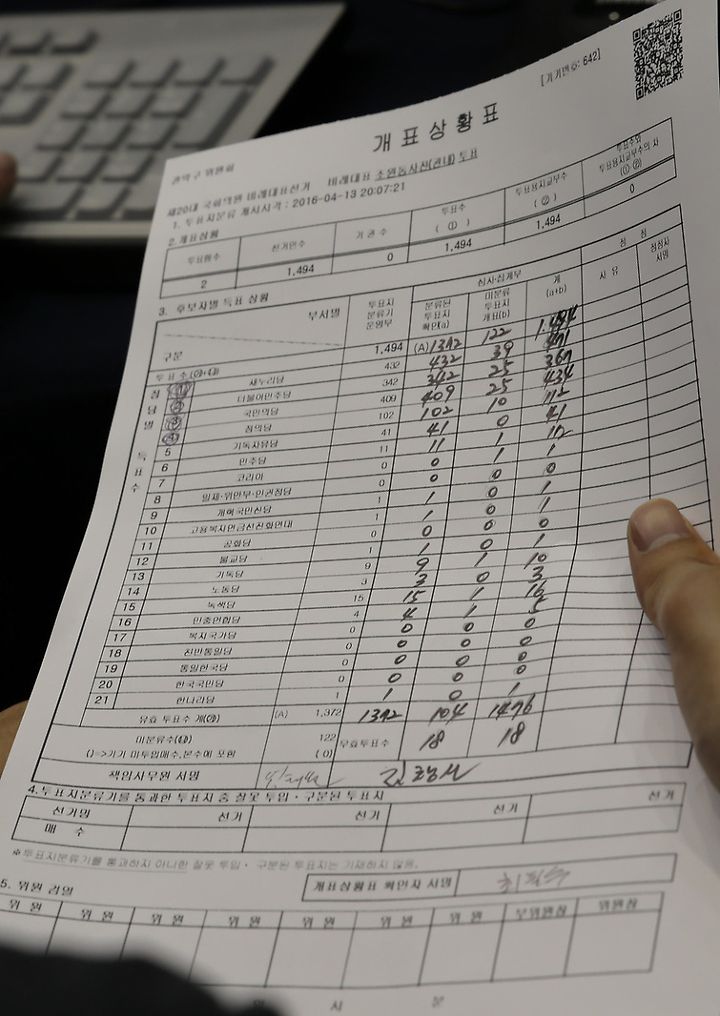 [기기번호: 642]
개표상황표
관악구 위원회
제20대 국회의원 비례대표선거 비례대표 소원동사전(관내) 투표
1. 투표지분류 개시시각 : 2016-04-13 20:07:21
2. 개표상황
투표함수 선거인수 기권수 투표수 (①) 투표용지교부수 (②) 투표수와 투표용지교부수의 차 (①-②)
2 1,494 0 1,494 1,494 0
3. 후보자별 득표 상황
부서명 투표지분류기운영부 심사·집계부 정정
구분 분류된 투표지 확인(a) 미분류 투표지 개표(b) 계 (a+b) 사유 정정자 서명
1,494 (A)1372 122 1494
정당별 득표수
새누리당 432 432 39 471
더불어민주당 342 342 25 367
국민의당 409 409 25 434
정의당 102 102 10 112
5 기독자유당 41 41 0 41
6 민주당 11 11 1 12
7 코리아 0 0 1 1
8 일제·위안부·인권정당 0 0 0 0
9 개혁국민신당 1 1 0 1
10 고용복지연금선진화연대 1 1 0 1
11 공화당 0 0 0 0
12 불교당 1 1 0 1
13 기독당 9 9 1 10
14 노동당 3 3 0 3
15 녹색당 15 15 1 16
16 민중연합당 4 4 1 5
17 복지국가당 0 0 0 0
18 친반통일당 0 0 0 0
19 통일한국당 0 0 0 0
20 한국국민당 0 0 0 0
21 한나라당 1 1 0 1
유효 투표수 계(㉮) (A) 1,372 1372 104 1476
미분류수(㉯) 122 무효투표수 18 18
()=>기기 미투입매수,본수에 포함 (0)
책임사무원 서명
4. 투표지분류기를 통과한 투표지 중 잘못 투입·구분된 투표지
선거명 선거 선거 선거 선거 선거
매 수
※투표지분류기를 통과하지 아니한 잘못 투입·구분된 투표지는 기재하지 않음.
개표상황표 확인자 서명
5. 위원 검열
위원 위원 위원 위원 위원 위원 위원 부위원장 위원장
시 분